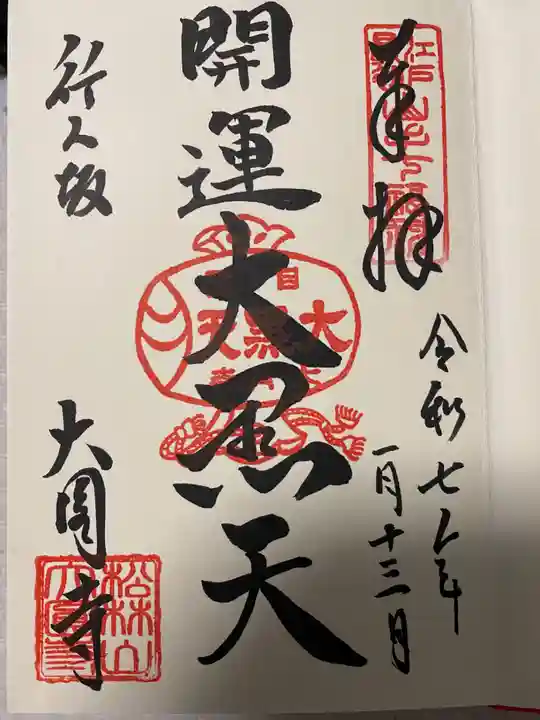 奉拝
令和七年
一月十三日
開運大黒天
目
大黒天
行人坂
大圓寺
松林山
大圓寺